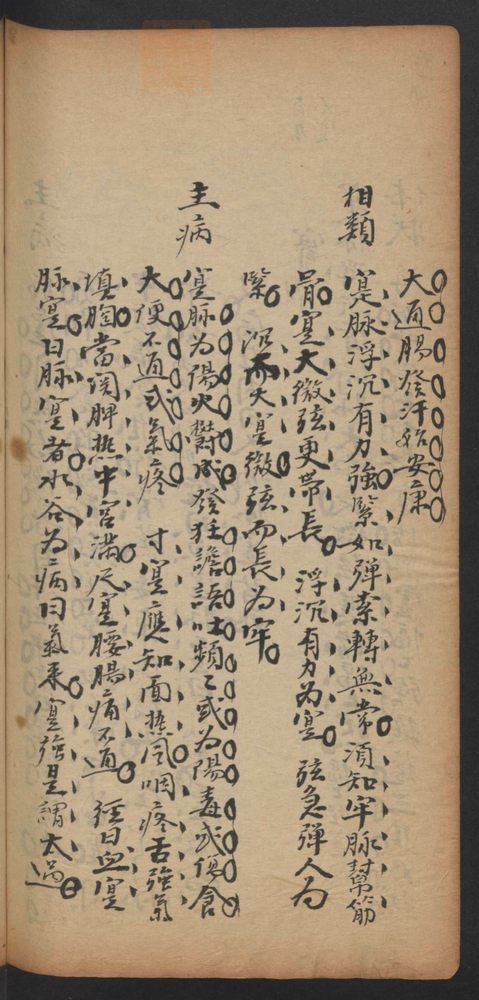 大通腸發汗始安康
相類
寔脉浮沉有力強緊如彈索轉無常須知牢脉幫筋
骨寔大微弦更帶長 浮沉有力為寔 弦急彈人為
緊 沉而大寔微弦而長為牢
主病
寔脉為陽火鬱成發狂譫語吐頻々或為陽毒或傷食
大便不通或氣疼 寸寔應知面熱風咽疼舌強氣
填胸當関脾熱中宮滿尺寔腰腸痛不通 經曰血寔
脉寔曰脉寔者水谷為病曰氣来寔強是謂太過